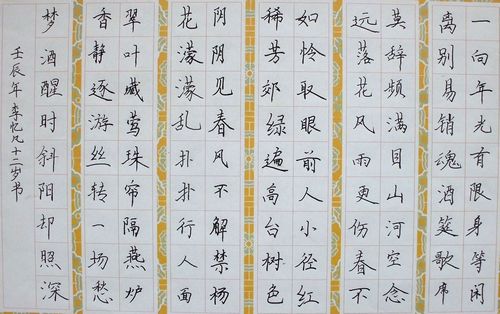 一向年光有限身等闲
离别易销魂酒筵歌席
莫辞频满目山河空念
远落花风雨更伤春不
如怜取眼前人小径红
稀芳郊绿遍高台树色
阴阴见春风不解禁杨
花濛濛乱扑扑行人面
翠叶藏莺珠帘隔燕炉
香静逐游丝转一场愁
梦酒醒时斜阳却照深
壬辰年 李忆凡十二岁书